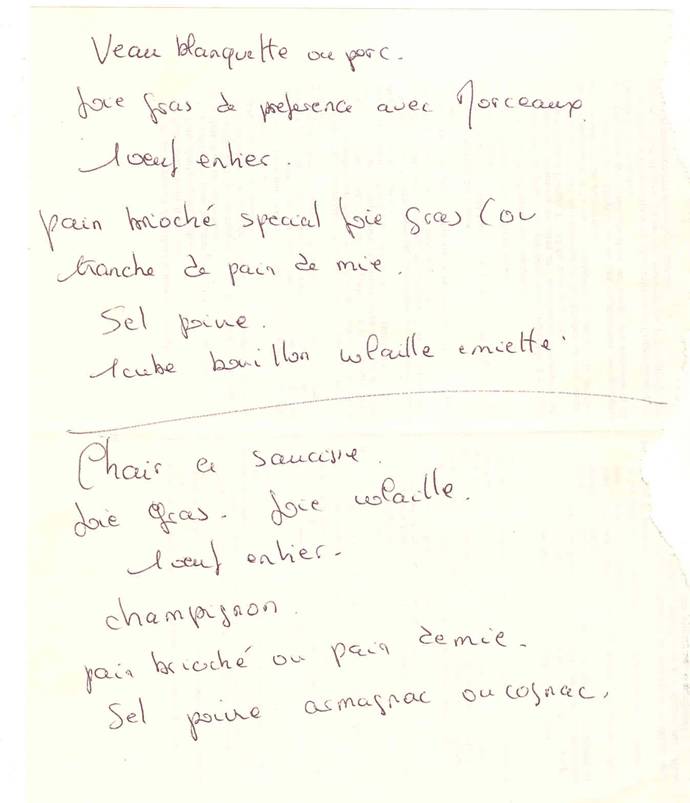 Veau blanquette ou porc.
foie gras de preference avec Morceaux.
1 oeuf entier.
pain brioché special foie gras (ou
tranche de pain de mie.
Sel poivre.
1 cube bouillon volaille emietté.
Chair a saucisse.
foie gras. foie volaille.
1 oeuf entier.
champignon.
pain brioché ou pain de mie.
Sel poivre armagnac ou cognac.